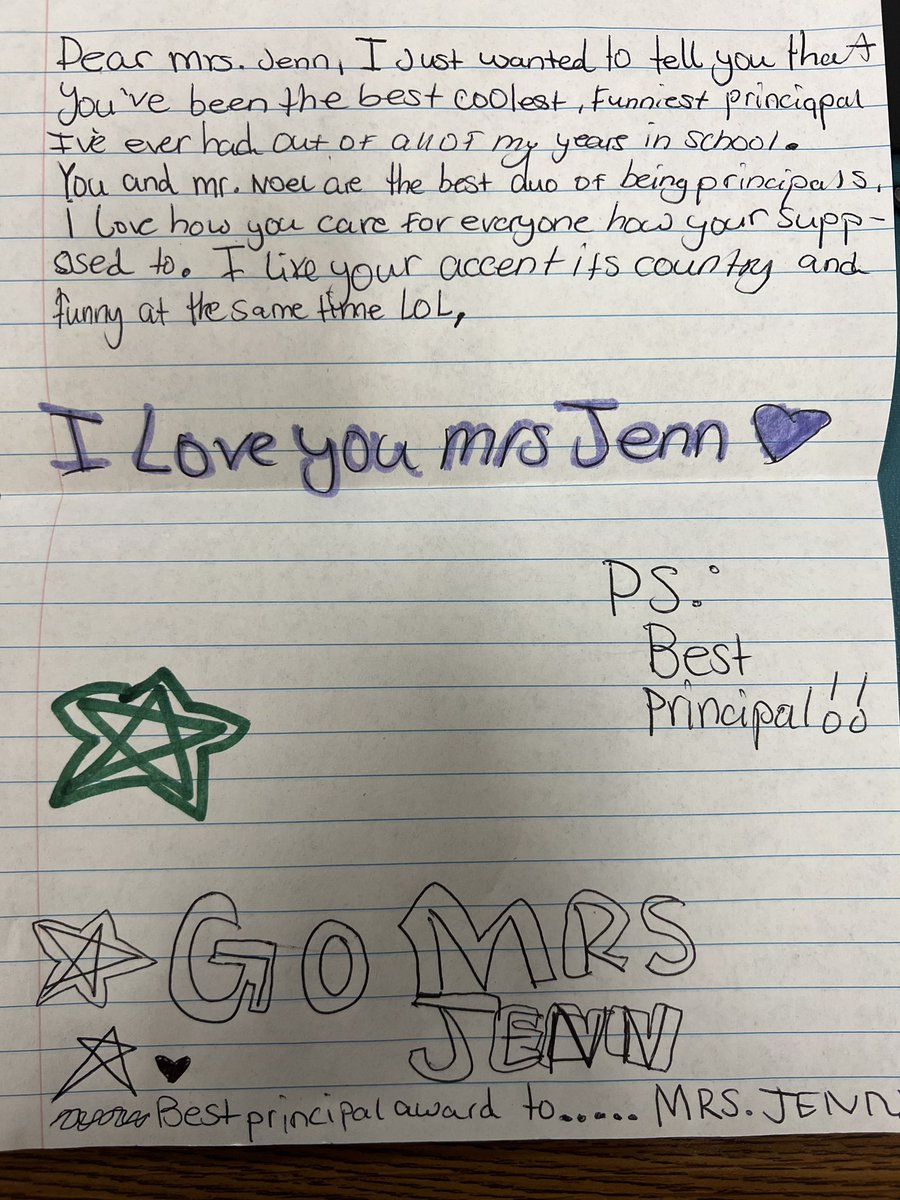 Dear mrs. Jenn, I Just wanted to tell you that
You've been the best coolest, Funniest princiqpal
I've ever had out of all of my years in school.
You and mr. Noel are the best duo of being principals.
I love how you care for everyone how your supp-
osed to. I like your accent its country and
funny at the same time LOL,
I Love you mrs Jenn
PS:
Best
Principal!!
GO MRS
JENN
Best principal award to...... MRS. JENN